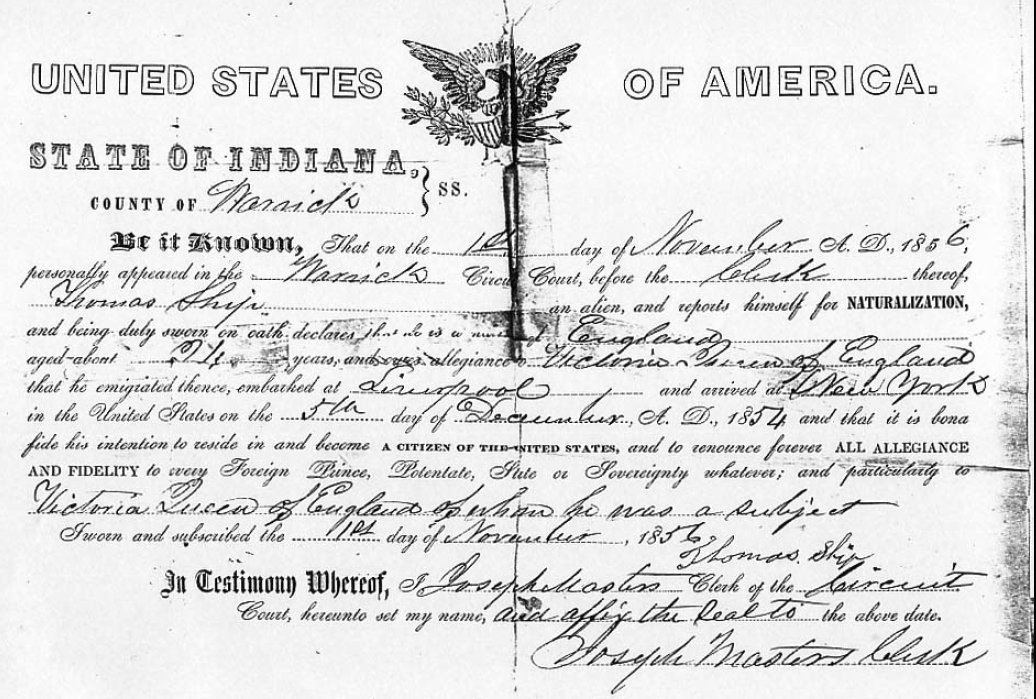 UNITED STATES OF AMERICA.
STATE OF INDIANA,
COUNTY OF Warrick } SS.
Be it Known, That on the 1st day of November A. D., 1856,
personally appeared in the Warrick Circuit Court, before the Clerk thereof,
Thomas Ship an alien, and reports himself for NATURALIZATION,
and being duly sworn on oath declares that he is a native of England
aged about years, and owes allegiance to Victoria Queen of England
that he emigrated thence, embarked at Liverpool and arrived at New York
in the United States on the 5th day of December, A. D., 1854, and that it is bona
fide his intention to reside in and become A CITIZEN OF THE UNITED STATES, and to renounce forever ALL ALLEGIANCE
AND FIDELITY to every Foreign Prince, Potentate, State or Sovereignty whatever; and particularly to
Victoria Queen of England of whom he was a subject
Sworn and subscribed the 1st day of November, 1856
Thomas Ship
In Testimony Whereof, I Joseph Masters Clerk of the Circuit
Court, hereunto set my name, and affix the Seal to the above date.
Joseph Masters Clerk